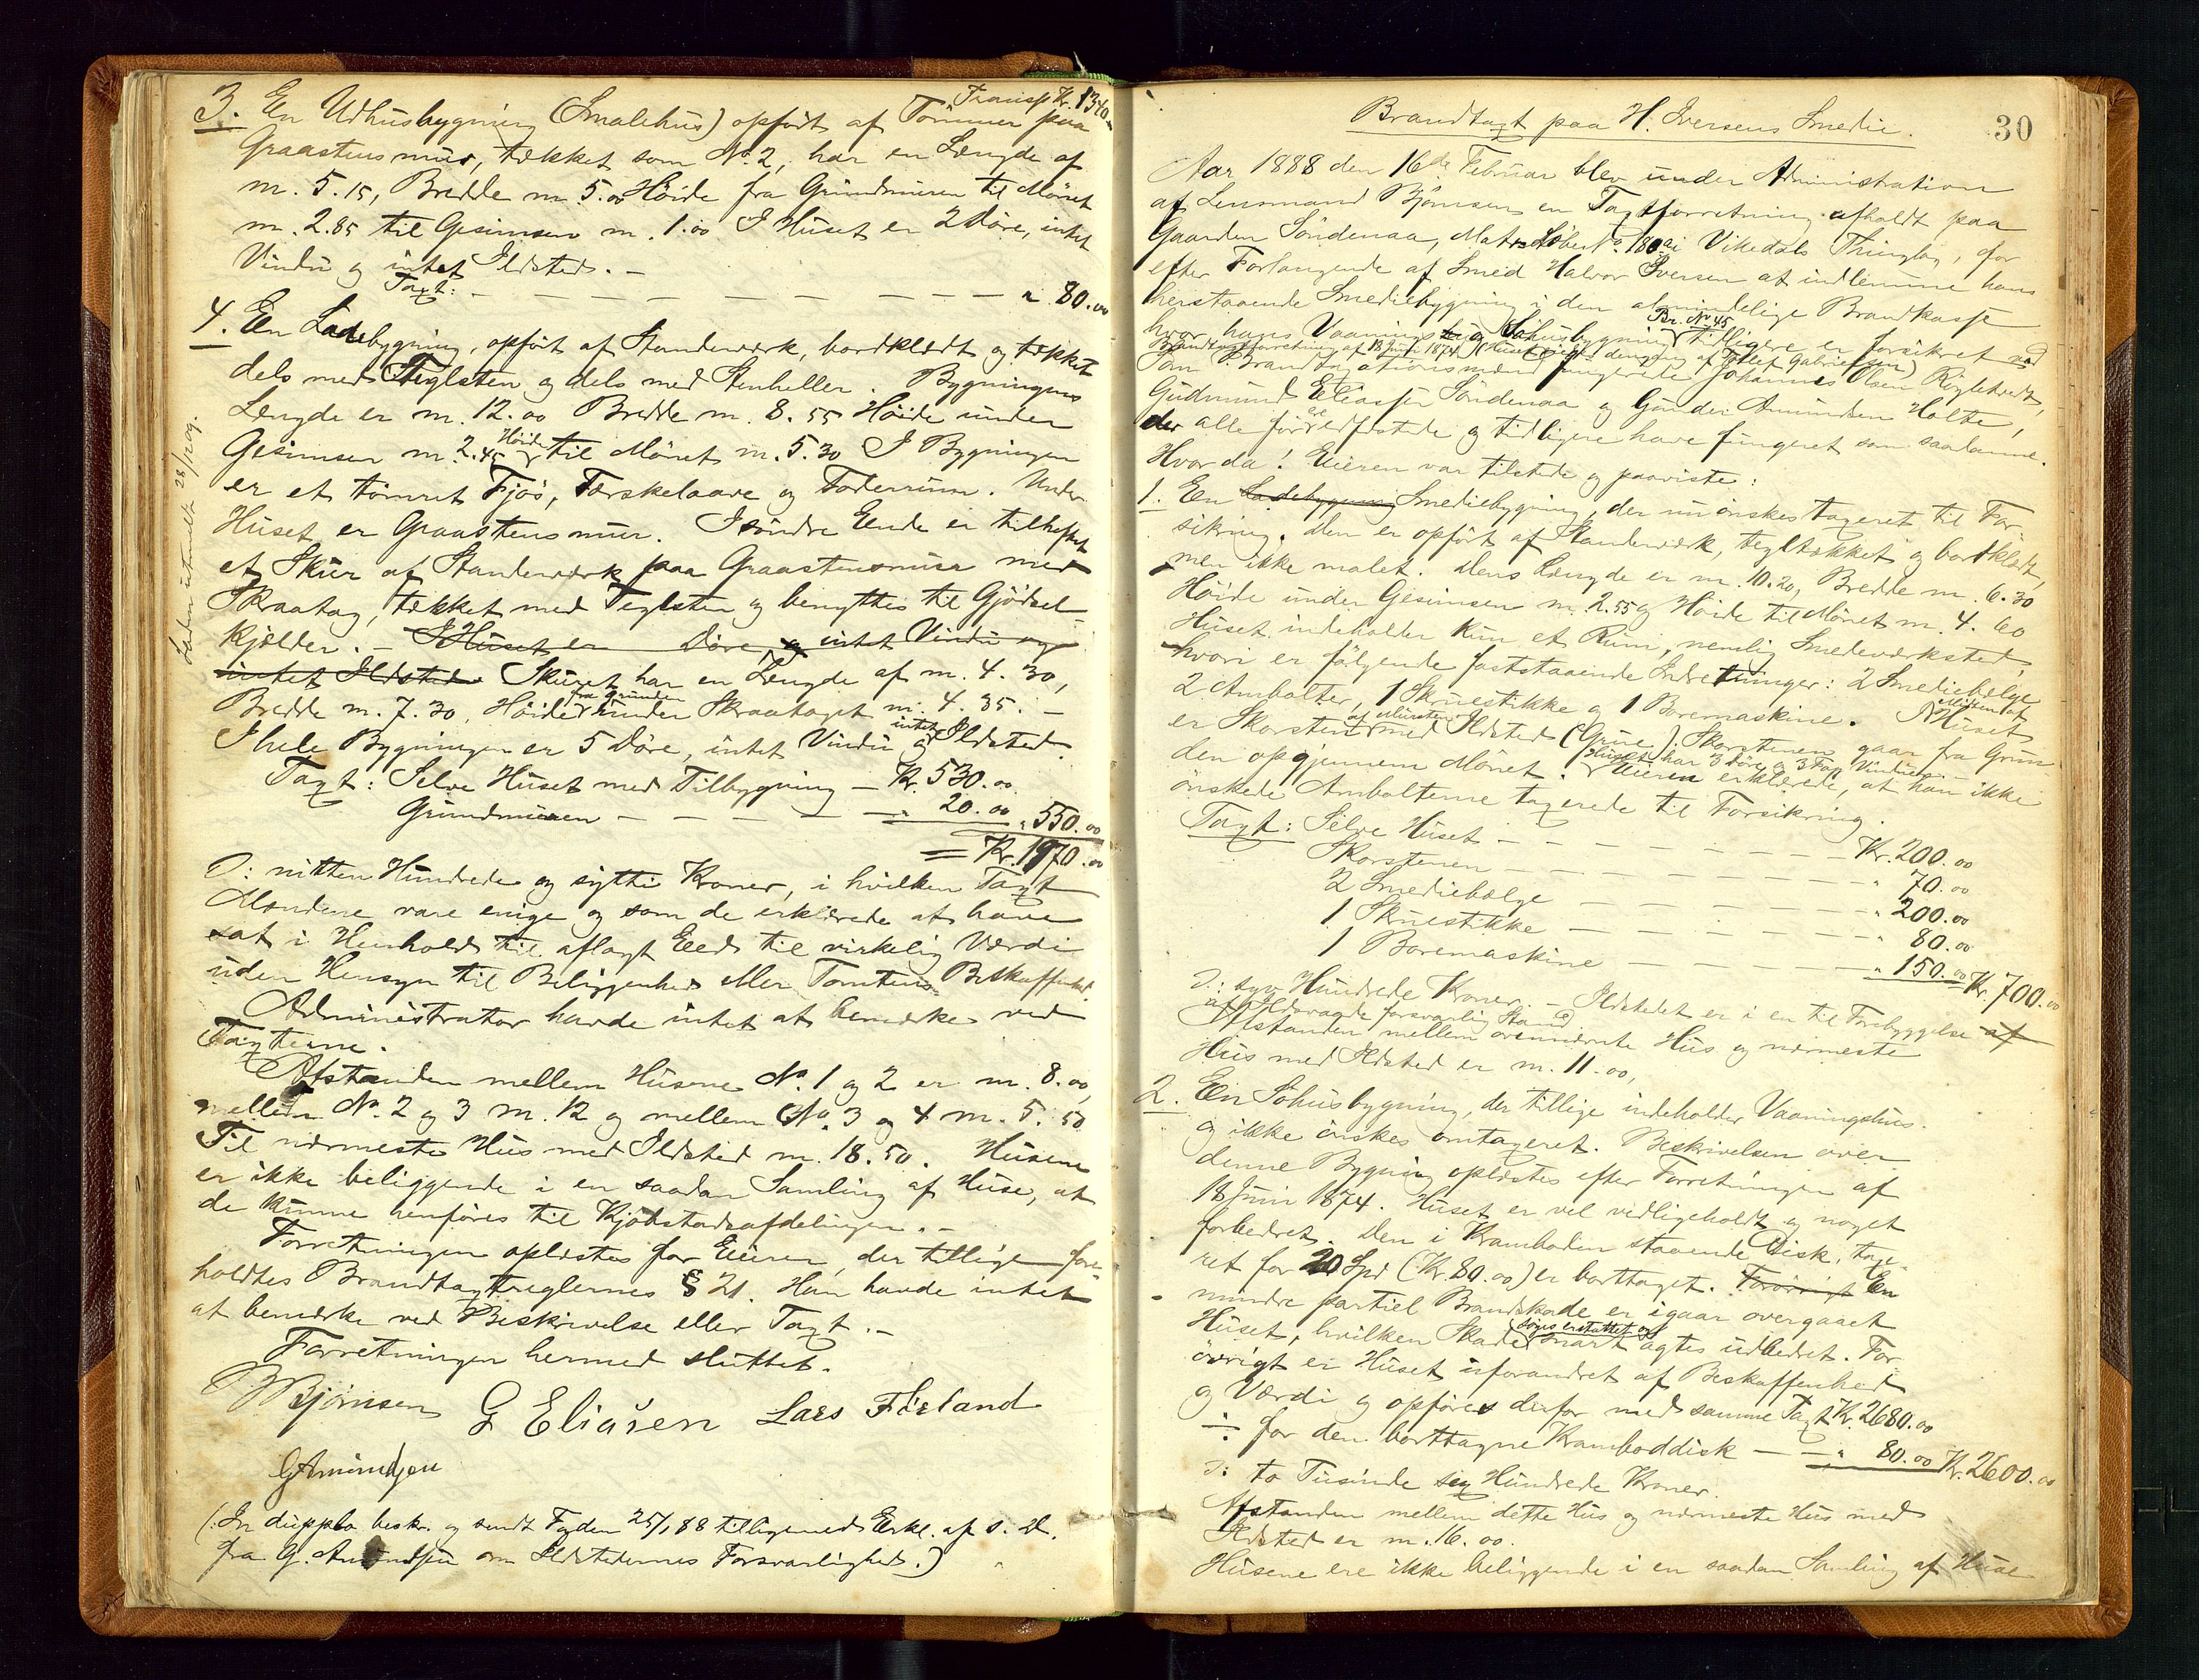 Transp. Kr. 1340.
3. En Udhusbygning (Smalehus) opført af Tømmer paa
Graastensmur, tækket som No. 2, har en Længde af
m. 5.15, Bredde m. 5.00 Høide fra Grundmuren til Mønet
m. 2.85 til Gesimsen m. 1.00 I Huset er 2 Døre, intet
Vindu og intet Ildsted. -
Taxt: - " 80.00
4. En Ladebygning, opført af Standerværk, bordklædt og tækket
dels med Teglsten og dels med Stenheller. Bygningens
Længde er m. 12.00 Bredde m. 8.55 Høide under
Gesimsen m. 2.45 Høide til Mønet m. 5.30 I Bygningen
er et tømret Fjøs, Tærskelaave og Foderrum. Under
Huset er Graastensmur. I søndre Ende er tilheftet
et Skur af Standerværk paa Graastensmur med
Skraatag, tækket med Teglsten og benyttes til Gjødsel-
kjelder. - I Huset er Døre, og intet Vindu og
intet Ildsted. Skuret har en Længde af m. 4.30,
Bredde m. 7.30, Høide fra Grunden under Skraataget m. 4.35. -
I hele Bygningen er 5 Døre, intet Vindu og intet Ildsted.
Taxt: Selve Huset med Tilbygning - Kr. 530.00
Grundmuren - " 20.00 " 550.00
= Kr. 1970.00
ɔ: nitten Hundrede og sytti Kroner, i hvilken Taxt
Mændene vare enige og som de erklærede at have
sat i Henhold til aflagt Eed til virkelig Værdi
uden Hensyn til Beliggenhed eller Tomtens Beskaffenhed.
Administrator havde intet at bemærke ved
Taxterne.
Afstanden mellem Husene No. 1 og 2 er m. 8.00,
mellem No. 2 og 3 m. 12 og mellem No. 3 og 4 m. 5.50
Til nærmeste Hus med Ildsted m. 18.50. Husene
er ikke beliggende i en saadan Samling af Huse, at
de kunne henføres til Kjøbstadsafdelingen. -
Forretningen oplæstes for Eieren, der tillige fore-
holdtes Brandtaxtreglernes § 21. Han havde intet
at bemærke ved Beskrivelse eller Taxt. -
Forretningen hermed sluttet.
Bjørnsen G Eliasen Lars Førland
GAmundsen
(In duplo beskr. og sendt Fogden 25/1 88 tilligemed Erkl. af s. D.
fra G. Amundsen om Ildstedernes Forsvarlighed.)
28/12 09.
30
Brandtaxt paa H. Iversens Smedie.
Aar 1888 den 16de Februar blev under Administration
af Lensmand Bjørnsen en Taxtforretning afholdt paa
Gaarden Søndenaa, Matr. Løbe No. 180a i Vikedals Thinglag, for
efter Forlangende af Smed Halvor Iversen at indlemme hans
herstaaende Smediebygning i den almindelige Brandkasse
hvor hans Vaanings og Søhusbygning Br. No 45 tidligere er forsikret ved
Brandtaxtforretning af 18 Juni 1874 (Huset eiet dengang af Tollef Gabrielsen)
Som Brandtaxationsmænd fungerede Johannes Olsen Røgletvedt,
Gudmund Eliassen Søndenaa og Gunder Amundsen Holte,
der alle før ere edfæstede og tidligere have fungeret som saadanne.
Hvor da! Eieren var tilstede og paaviste:
1. En Ladebygning Smediebygning, der nu ønskes taxeret til For-
sikring. Den er opført af Standerværk, tegltækket og bordklædt,
men ikke malet. Dens Længde er m. 10.20, Bredde m. 6.30
Høide under Gesimsen m. 2.55 og Høide til Mønet m. 4.60
Huset indeholder kun et Rum, nemlig Smedeværksted,
hvori er følgende faststaaende Indretninger: 2 Smediebelge
2 Ambolter, 1 Skruestikke og 1 Boremaskine. Midten af Huset
er Skorsten af Mursten med Ildsted (Grue). Skorstenen gaar fra Grun-
den opgjennem Mønet. Huset har 3 Døre og 3 Fag Vinduer. Eieren erklærede, at han ikke
ønskede Ambolterne taxerede til Forsikring.
Taxt: Selve Huset - Kr. 200.00
Skorstenen - " 70.00
2 Smediebelge - " 200.00
1 Skruestikke - " 80.00
1 Boremaskine - " 150.00 Kr. 700.00
ɔ: syv Hundrede Kroner. - Ildstedet er i en til Forebyggelse af
af Ildsvaade forsvarlig Stand.
Afstanden mellem ovennævnte Hus og nærmeste
Hus med Ildsted er m. 11.00,
2. En Søhusbygning, der tillige indeholder Vaaningshus.
og ikke ønskes omtaxeret. Beskrivelsen over
denne Bygning oplæstes efter Forretningen af
18 Juni 1874. Huset er vel vedligeholdt og noget
forbedret. Den i Kramboden staaende Disk, taxe-
ret for 20 Spd (Kr. 80.00) er borttaget. Forøvrigt En
mindre partiel Brandskade er igaar overgaaet
Huset, hvilken Skade søges erstattet og snart agtes udbedret. For-
øvrigt er Huset uforandret af Beskaffenhed
og Værdi og opføres derfor med samme Taxt Kr. 2680.00
÷ for den borttagne Kramboddisk - " 80.00 Kr. 2600.00
ɔ: to Tusinde sex Hundrede Kroner.
Afstanden mellem dette Hus og nærmeste Hus med
Ildsted er m. 16.00.
Husene ere ikke beliggende i en saadan Samling af Huse